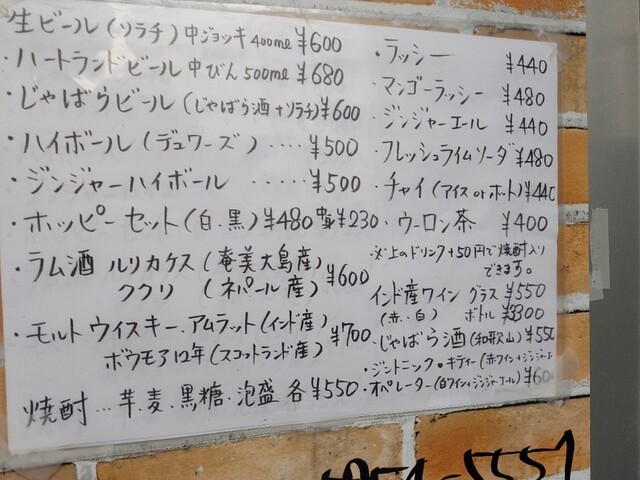 生ビール(ソラチ)中ジョッキ400ml ¥600
・ハートランドビール中びん500ml ¥680
・じゃばらビール(じゃばら酒+ソラチ)¥600
・ハイボール(デュワーズ)‥‥¥500
・ジンジャーハイボール ‥‥‥¥500
・ホッピーセット(白.黒)¥480 中身¥230
・ラム酒 ルリカケス(奄美大島産)
ククリ (ネパール産) ¥600
・モルトウィスキー.アムラット(インド産)
ボウモア12年(スコットランド産) ¥700
焼酎…芋.麦.黒糖.泡盛 各¥550
・ラッシー ¥440
・マンゴーラッシー ¥480
・ジンジャーエール ¥440
・フレッシュライムソーダ ¥480
・チャイ(アイス or ホート)¥440
・ウーロン茶 ¥400
※上のドリンク+50円で焼酎入り
できます。
インド産ワイン グラス ¥550
(赤.白) ボトル ¥3300
・じゃばら酒(和歌山)¥550
・ジントニック・キティー(赤ワイン+ジンジャーエ
・オペレーター(白ワイン+ジンジャーエール)¥60